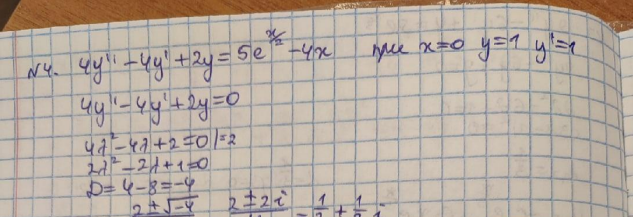 N4. 4y'' - 4y' + 2y = 5e^{x/2} - 4x при x=0 y=1 y'=1
4y'' - 4y' + 2y = 0
4λ² - 4λ + 2 = 0 |÷2
2λ² - 2λ + 1 = 0
D = 4 - 8 = -4
2 ± √-4 2 ± 2i = 1 + 1 i